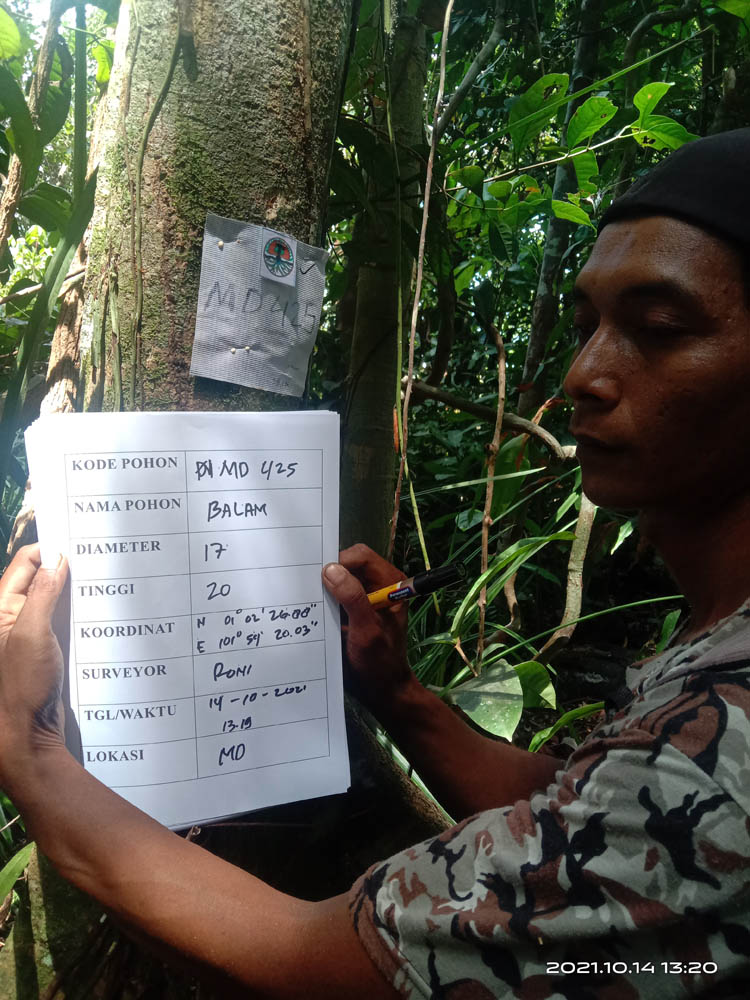 MD 425
KODE POHON MD 425
NAMA POHON BALAM
DIAMETER 17
TINGGI 20
KOORDINAT N 01° 02' 26.00"
E 101° 59' 20.03"
SURVEYOR RONI
TGL/WAKTU 14-10-2021
13.19
LOKASI MD
2021.10.14 13:20